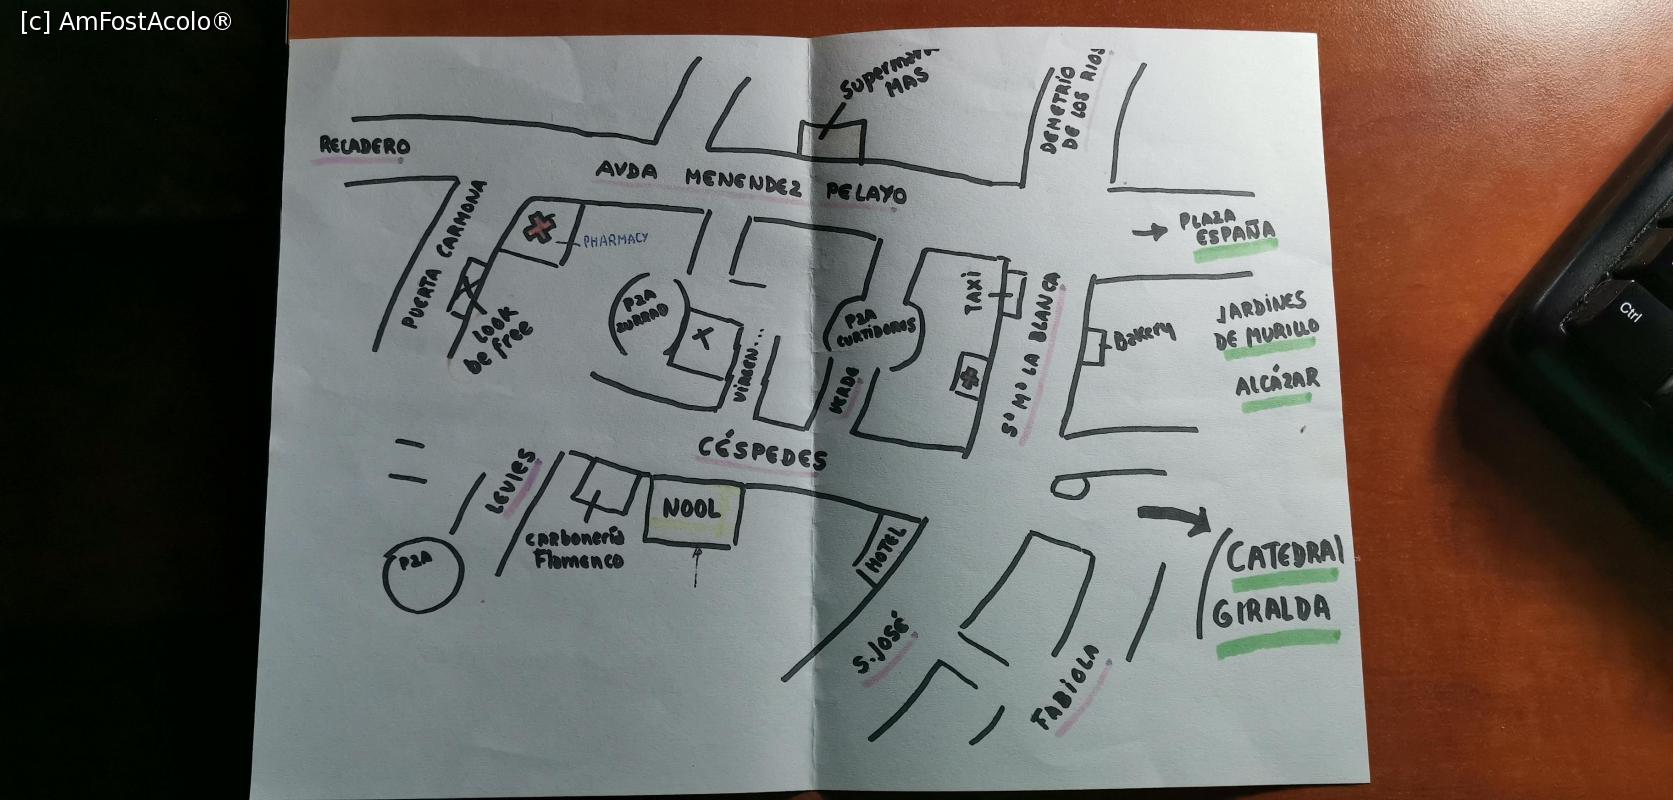 [c] AmFostAcolo®
MAS
DEMETRIO
DE LOS RIOS
RECADERO
AVDA MENENDEZ PELAYO
PUERTA CARMONA
PHARMACY
PLAZA
ESPAÑA
LOOK
be free
PZA
ZURRAD
VIRGEN...
PZA
CURTIDORES
VERDE
TAXI
Sª Mª LA BLANCA
Bakery
JARDINES
DE MURILLO
ALCÁZAR
CÉSPEDES
LEVIES
NOOL
carbonería
Flamenco
PZA
HOTEL
S. JOSÉ
FABIOLA
CATEDRAL
GIRALDA
Ctrl